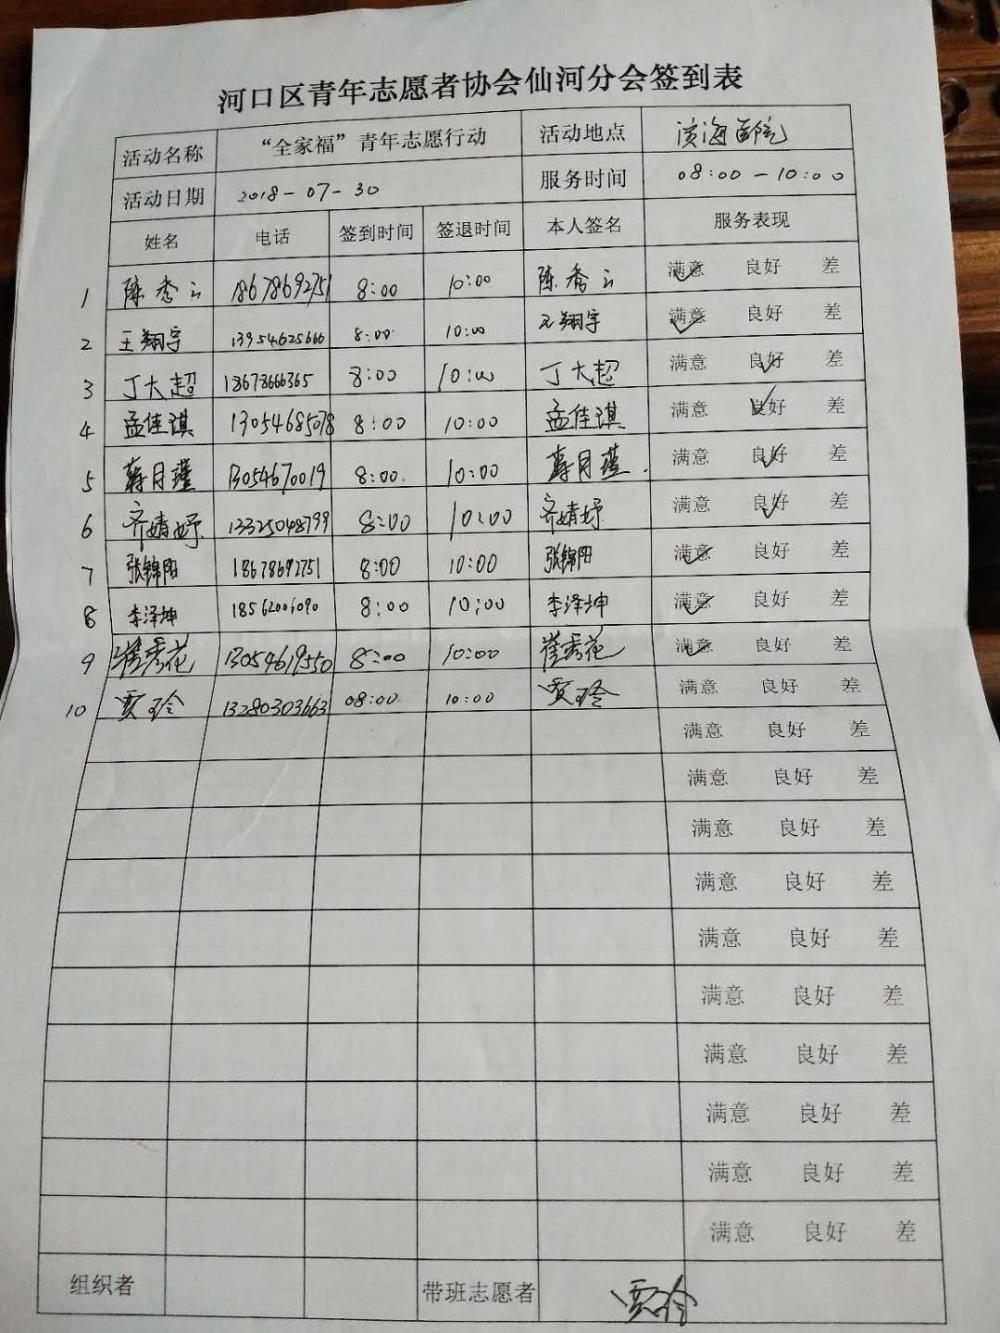 河口区青年志愿者协会仙河分会签到表
活动名称 “全家福”青年志愿行动 活动地点 滨海医院
活动日期 2018-07-30 服务时间 08:00-10:00
姓名 电话 签到时间 签退时间 本人签名 服务表现
1 陈秀云 18678692751 8:00 10:00 陈秀云 满意 良好 差
2 王翔宇 13954625666 8:00 10:00 王翔宇 满意 良好 差
3 丁大超 18678666365 8:00 10:00 丁大超 满意 良好 差
4 孟佳琪 13054685078 8:00 10:00 孟佳琪 满意 良好 差
5 月瑾 13054670019 8:00 10:00 月瑾 满意 良好 差
6 齐婧妤 13325048799 8:00 10:00 齐婧妤 满意 良好 差
7 张锦阳 18678692751 8:00 10:00 张锦阳 满意 良好 差
8 李泽坤 18562006090 8:00 10:00 李泽坤 满意 良好 差
9 崔秀花 13054619550 8:00 10:00 崔秀花 满意 良好 差
10 贾玲 13280303663 08:00 10:00 贾玲 满意 良好 差
满意 良好 差
满意 良好 差
满意 良好 差
满意 良好 差
满意 良好 差
满意 良好 差
满意 良好 差
满意 良好 差
满意 良好 差
满意 良好 差
组织者 带班志愿者 贾玲